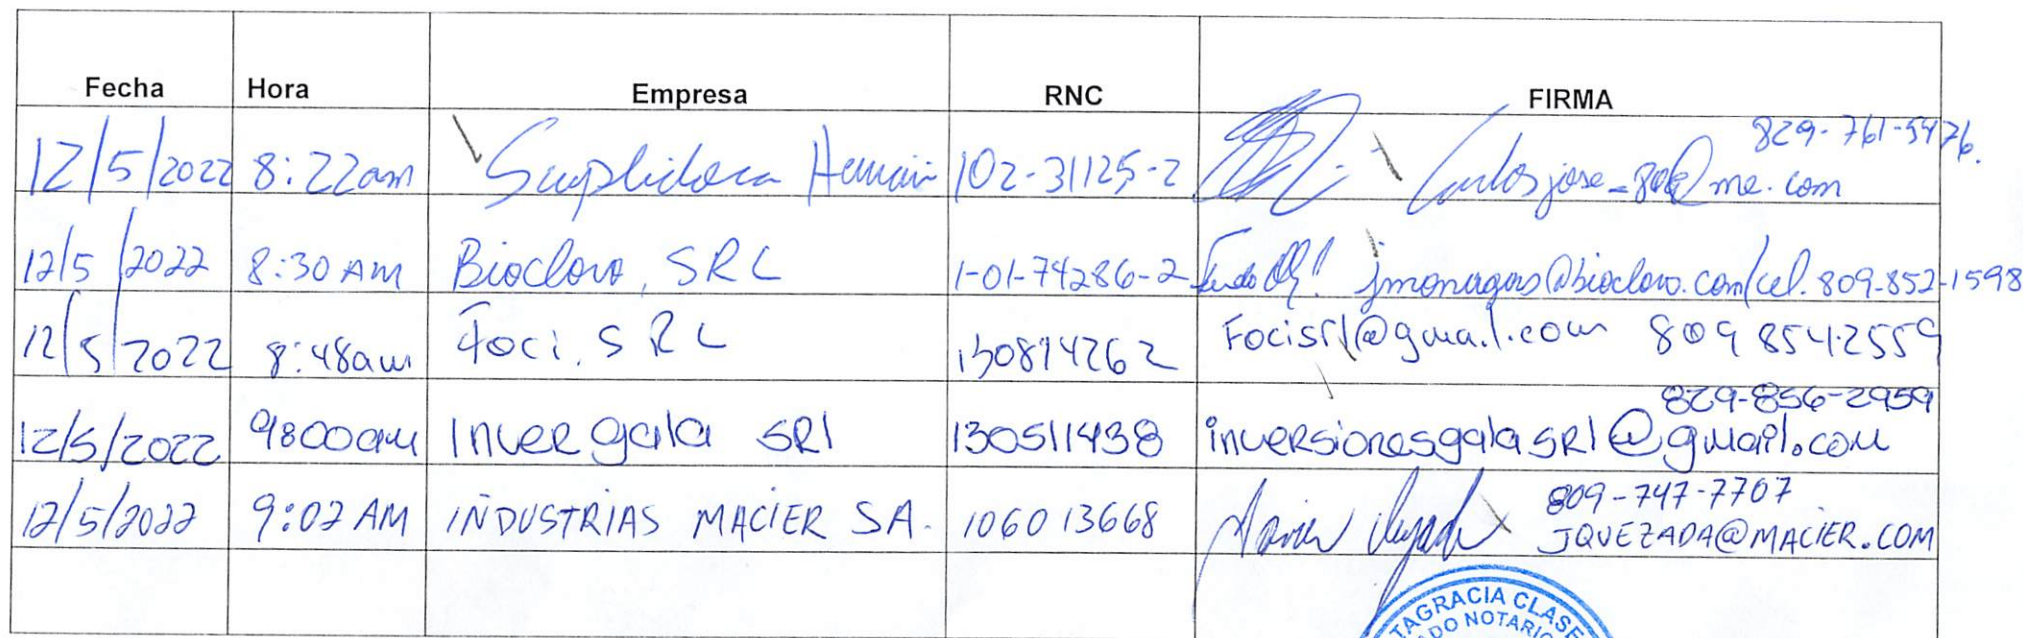 Fecha Hora Empresa RNC FIRMA
829-761-5476.
12/5/2022 8:22am Suplidora 102-31125-2 Carlosjose_80@me.com
12/5/2022 8:30 AM Bioclove, SRL 1-01-74286-2 jmonagas@bioclove.com/cel. 809-852-1598
12/5/2022 8:48am Foci, SRL 130814262 Focisrl@gmail.com 809 854-2559
829-856-2959
12/5/2022 9:00am Invergala SRl 130511438 inversionesgalasRl@gmail.com
809-747-7707
12/5/2022 9:02 AM INDUSTRIAS MACIER SA. 106013668 JQUEZADA@MACIER.COM
TAGRACIA CLASE
ADO NOTARIO